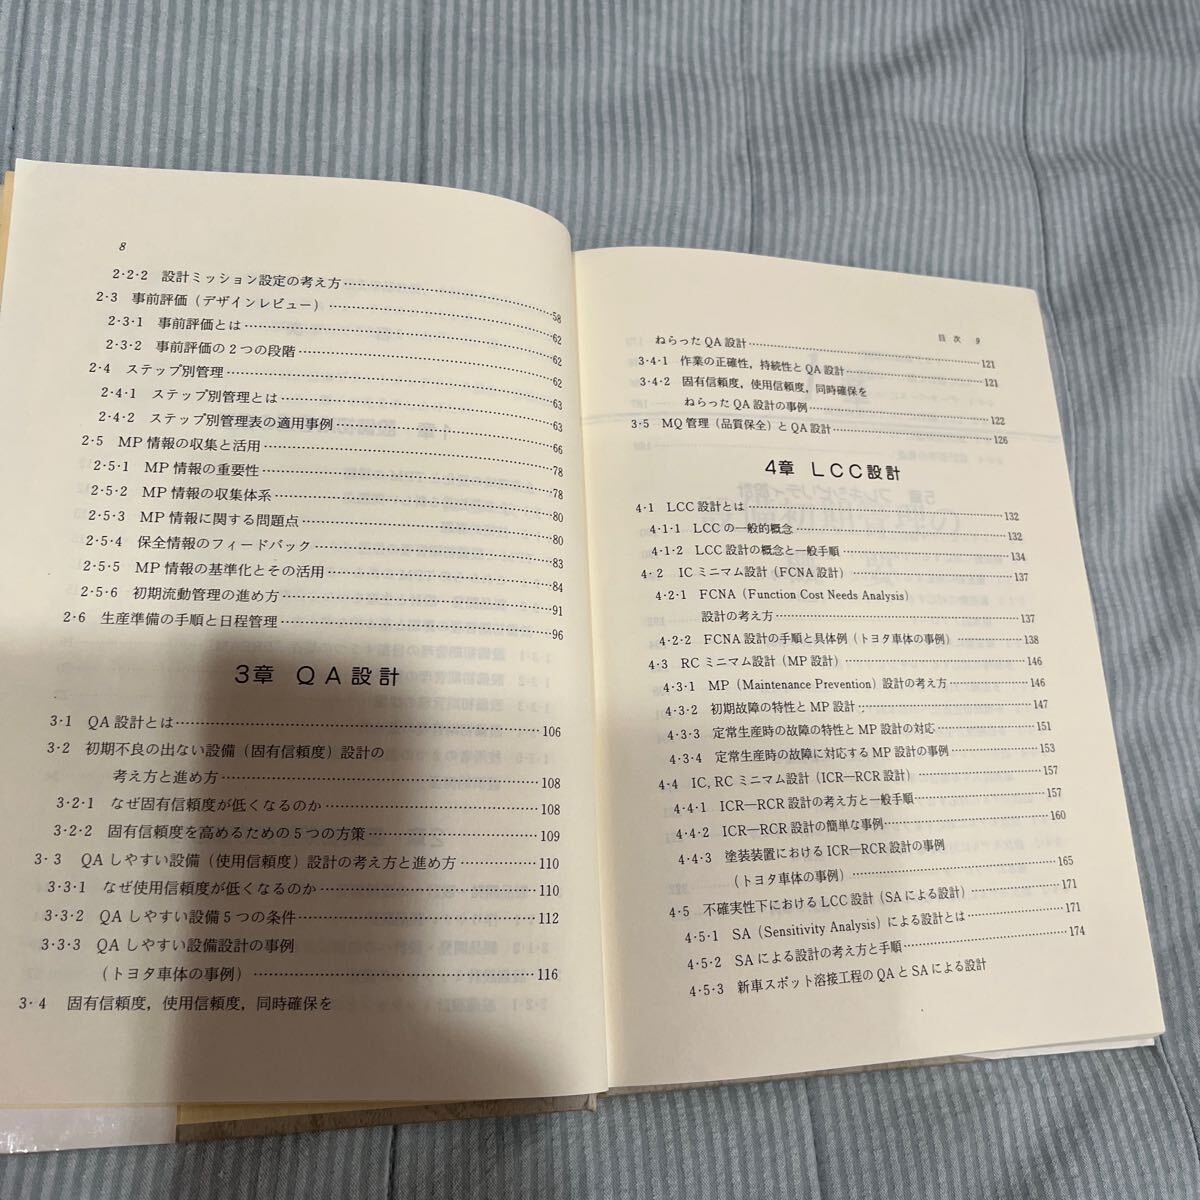 8
2・2・2 設計ミッション設定の考え方……58
2・3 事前評価（デザインレビュー）……62
2・3・1 事前評価とは……62
2・3・2 事前評価の2つの段階……62
2・4 ステップ別管理……63
2・4・1 ステップ別管理とは……63
2・4・2 ステップ別管理表の適用事例……66
2・5 MP情報の収集と活用……78
2・5・1 MP情報の重要性……78
2・5・2 MP情報の収集体系……80
2・5・3 MP情報に関する問題点……80
2・5・4 保全情報のフィードバック……83
2・5・5 MP情報の基準化とその活用……84
2・5・6 初期流動管理の進め方……91
2・6 生産準備の手順と日程管理……96
3章 QA設計
3・1 QA設計とは……106
3・2 初期不良の出ない設備（固有信頼度）設計の
考え方と進め方……108
3・2・1 なぜ固有信頼度が低くなるのか……108
3・2・2 固有信頼度を高めるための5つの方策……109
3・3 QAしやすい設備（使用信頼度）設計の考え方と進め方……110
3・3・1 なぜ使用信頼度が低くなるのか……110
3・3・2 QAしやすい設備5つの条件……112
3・3・3 QAしやすい設備設計の事例
（トヨタ車体の事例）……116
3・4 固有信頼度，使用信頼度，同時確保を
目次 9
ねらったQA設計……121
3・4・1 作業の正確性，持続性とQA設計……121
3・4・2 固有信頼度，使用信頼度，同時確保を
ねらったQA設計の事例……122
3・5 MQ管理（品質保全）とQA設計……126
4章 LCC設計
4・1 LCC設計とは……132
4・1・1 LCCの一般的概念……132
4・1・2 LCC設計の概念と一般手順……134
4・2 ICミニマム設計（FCNA設計）……137
4・2・1 FCNA（Function Cost Needs Analysis）
設計の考え方……137
4・2・2 FCNA設計の手順と具体例（トヨタ車体の事例）……138
4・3 RCミニマム設計（MP設計）……146
4・3・1 MP（Maintenance Prevention）設計の考え方……146
4・3・2 初期故障の特性とMP設計……147
4・3・3 定常生産時の故障の特性とMP設計の対応……151
4・3・4 定常生産時の故障に対応するMP設計の事例……153
4・4 IC, RCミニマム設計（ICR—RCR設計）……157
4・4・1 ICR—RCR設計の考え方と一般手順……157
4・4・2 ICR—RCR設計の簡単な事例……160
4・4・3 塗装装置におけるICR—RCR設計の事例
（トヨタ車体の事例）……165
4・5 不確実性下におけるLCC設計（SAによる設計）……171
4・5・1 SA（Sensitivity Analysis）による設計とは……171
4・5・2 SAによる設計の考え方と手順……174
4・5・3 新車スポット溶接工程のQAとSAによる設計